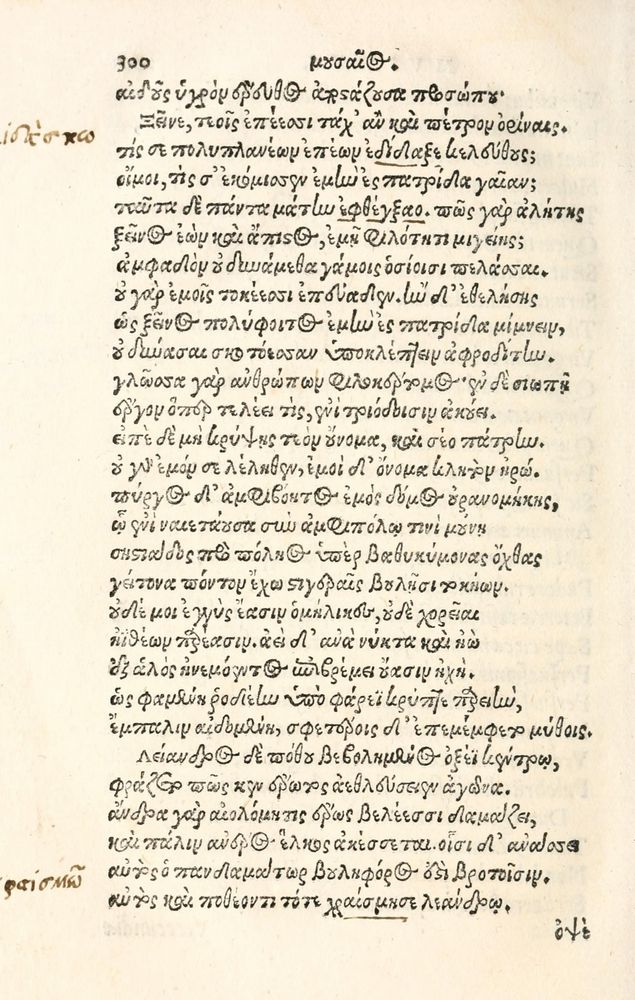 300 μουσαῖος.
αἰδοῦς ὑγρὸν ἔρευθος ἀποστάζουσα προσώπου·
Ξεῖνε, τεοῖς ἐπέεσσι τάχ' ἂν καὶ πέτρον ὀρίναις.
τίς σε πολυπλανέων ἐπέων ἐδίδαξε κελεύθους;
οἴμοι, τίς σ' ἐκόμισσεν ἐμὴν ἐς πατρίδα γαῖαν;
ταῦτα δὲ πάντα μάτην ἐφθέγξαο. πῶς γὰρ ἀλήτης
ξεῖνος ἐὼν καὶ ἄπιστος, ἐμῇ φιλότητι μιγείης;
ἀμφαδὸν οὐ δυνάμεθα γάμοις ὁσίοισι πελάσσαι.
οὐ γὰρ ἐμοῖς τοκέεσσι ἐπεύαδεν. ἢν δ' ἐθελήσῃς
ὡς ξεῖνος πολύφοιτος ἐμὴν ἐς πατρίδα μίμνειν,
οὐ δύνασαι σκοτόεσσαν ὑποκλέπτειν ἀφροδίτην.
γλῶσσα γὰρ ἀνθρώπων φιλοκέρτομος· ἐν δὲ σιωπῇ
ἔργον ὅπερ τελέει τις, ἐνὶ τριόδοισιν ἀκούει.
εἰπὲ δὲ μὴ κρύψῃς τεὸν οὔνομα, καὶ σέο πάτρην.
οὐ γὰρ ἐμόν σε λέληθεν, ἐμοὶ δ' ὄνομα κλητὸν ἡρώ.
πύργος δ' ἀμφιβόητος ἐμὸς δόμος οὐρανομήκης,
ᾧ ἐνὶ ναιετάουσα σὺν ἀμφιπόλῳ τινὶ μούνῃ
σηστιάδος πρὸ πόληος ὑπὲρ βαθυκύμονας ὄχθας
γείτονα πόντον ἔχω στυγεραῖς βουλῇσι τοκήων.
οὐδέ μοι ἐγγὺς ἔασιν ὁμήλικες, οὐδὲ χορεῖαι
ἠϊθέων παρέασιν. ἀεὶ δ' ἀνὰ νύκτα καὶ ἠὼ
ἐξ ἁλὸς ἠνεμόεντος ἐπιβρέμει οὔασιν ἠχή.
ὡς φαμένη ῥοδέην ὑπὸ φάρεϊ κρύπτε παρειὴν,
ἔμπαλιν αἰδομένη, σφετέροις δ' ἐπεμέμφετο μύθοις.
Λείανδρος δὲ πόθου βεβολημένος ὀξέϊ κέντρῳ,
φράζετο πῶς κεν ἔρωτος ἀεθλεύσειεν ἀγῶνα.
ἄνδρα γὰρ αἰολόμητις ἔρως βελέεσσι δαμάζει,
καὶ πάλιν ἀνέρος ἕλκος ἀκέσσεται. οἷσι δ' ἀνάσσει
αὐτὸς ὁ πανδαμάτωρ βουληφόρος ἐστὶ βροτοῖσιν.
αὐτὸς καὶ ποθέοντι τότε χραίσμησε λεάνδρῳ.
ὀψὲ